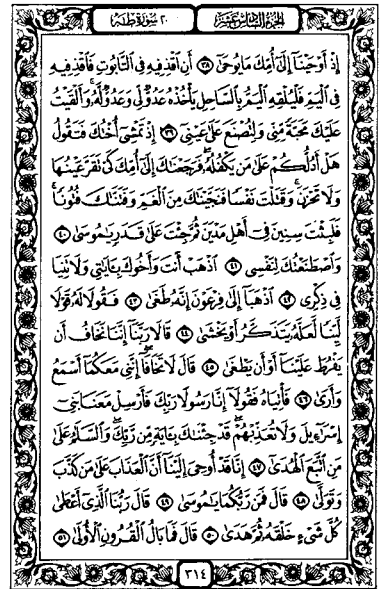 الجزء السادس عشر ٢٠ سورة طه
إِذْ أَوْحَيْنَآ إِلَىٰٓ أُمِّكَ مَا يُوحَىٰٓ ٣٨ أَنِ ٱقْذِفِيهِ فِى ٱلتَّابُوتِ فَٱقْذِفِيهِ
فِى ٱلْيَمِّ فَلْيُلْقِهِ ٱلْيَمُّ بِٱلسَّاحِلِ يَأْخُذْهُ عَدُوٌّ لِّى وَعَدُوٌّ لَّهُۥ ۚ وَأَلْقَيْتُ
عَلَيْكَ مَحَبَّةً مِّنِّى وَلِتُصْنَعَ عَلَىٰ عَيْنِىٓ ٣٩ إِذْ تَمْشِىٓ أُخْتُكَ فَتَقُولُ
هَلْ أَدُلُّكُمْ عَلَىٰ مَن يَكْفُلُهُۥ ۖ فَرَجَعْنَٰكَ إِلَىٰٓ أُمِّكَ كَىْ تَقَرَّ عَيْنُهَا
وَلَا تَحْزَنَ ۚ وَقَتَلْتَ نَفْسًا فَنَجَّيْنَٰكَ مِنَ ٱلْغَمِّ وَفَتَنَّٰكَ فُتُونًا ۚ
فَلَبِثْتَ سِنِينَ فِىٓ أَهْلِ مَدْيَنَ ثُمَّ جِئْتَ عَلَىٰ قَدَرٍ يَٰمُوسَىٰ ٤٠
وَٱصْطَنَعْتُكَ لِنَفْسِى ٤١ ٱذْهَبْ أَنتَ وَأَخُوكَ بِـَٔايَٰتِى وَلَا تَنِيَا
فِى ذِكْرِى ٤٢ ٱذْهَبَآ إِلَىٰ فِرْعَوْنَ إِنَّهُۥ طَغَىٰ ٤٣ فَقُولَا لَهُۥ قَوْلًا
لَّيِّنًا لَّعَلَّهُۥ يَتَذَكَّرُ أَوْ يَخْشَىٰ ٤٤ قَالَا رَبَّنَآ إِنَّنَا نَخَافُ أَن
يَفْرُطَ عَلَيْنَآ أَوْ أَن يَطْغَىٰ ٤٥ قَالَ لَا تَخَافَآ ۖ إِنَّنِى مَعَكُمَآ أَسْمَعُ
وَأَرَىٰ ٤٦ فَأْتِيَاهُ فَقُولَآ إِنَّا رَسُولَا رَبِّكَ فَأَرْسِلْ مَعَنَا بَنِىٓ
إِسْرَٰٓءِيلَ وَلَا تُعَذِّبْهُمْ ۖ قَدْ جِئْنَٰكَ بِـَٔايَةٍ مِّن رَّبِّكَ ۖ وَٱلسَّلَٰمُ عَلَىٰ
مَنِ ٱتَّبَعَ ٱلْهُدَىٰٓ ٤٧ إِنَّا قَدْ أُوحِىَ إِلَيْنَآ أَنَّ ٱلْعَذَابَ عَلَىٰ مَن كَذَّبَ
وَتَوَلَّىٰ ٤٨ قَالَ فَمَن رَّبُّكُمَا يَٰمُوسَىٰ ٤٩ قَالَ رَبُّنَا ٱلَّذِىٓ أَعْطَىٰ
كُلَّ شَىْءٍ خَلْقَهُۥ ثُمَّ هَدَىٰ ٥٠ قَالَ فَمَا بَالُ ٱلْقُرُونِ ٱلْأُولَىٰ ٥١
٣١٤